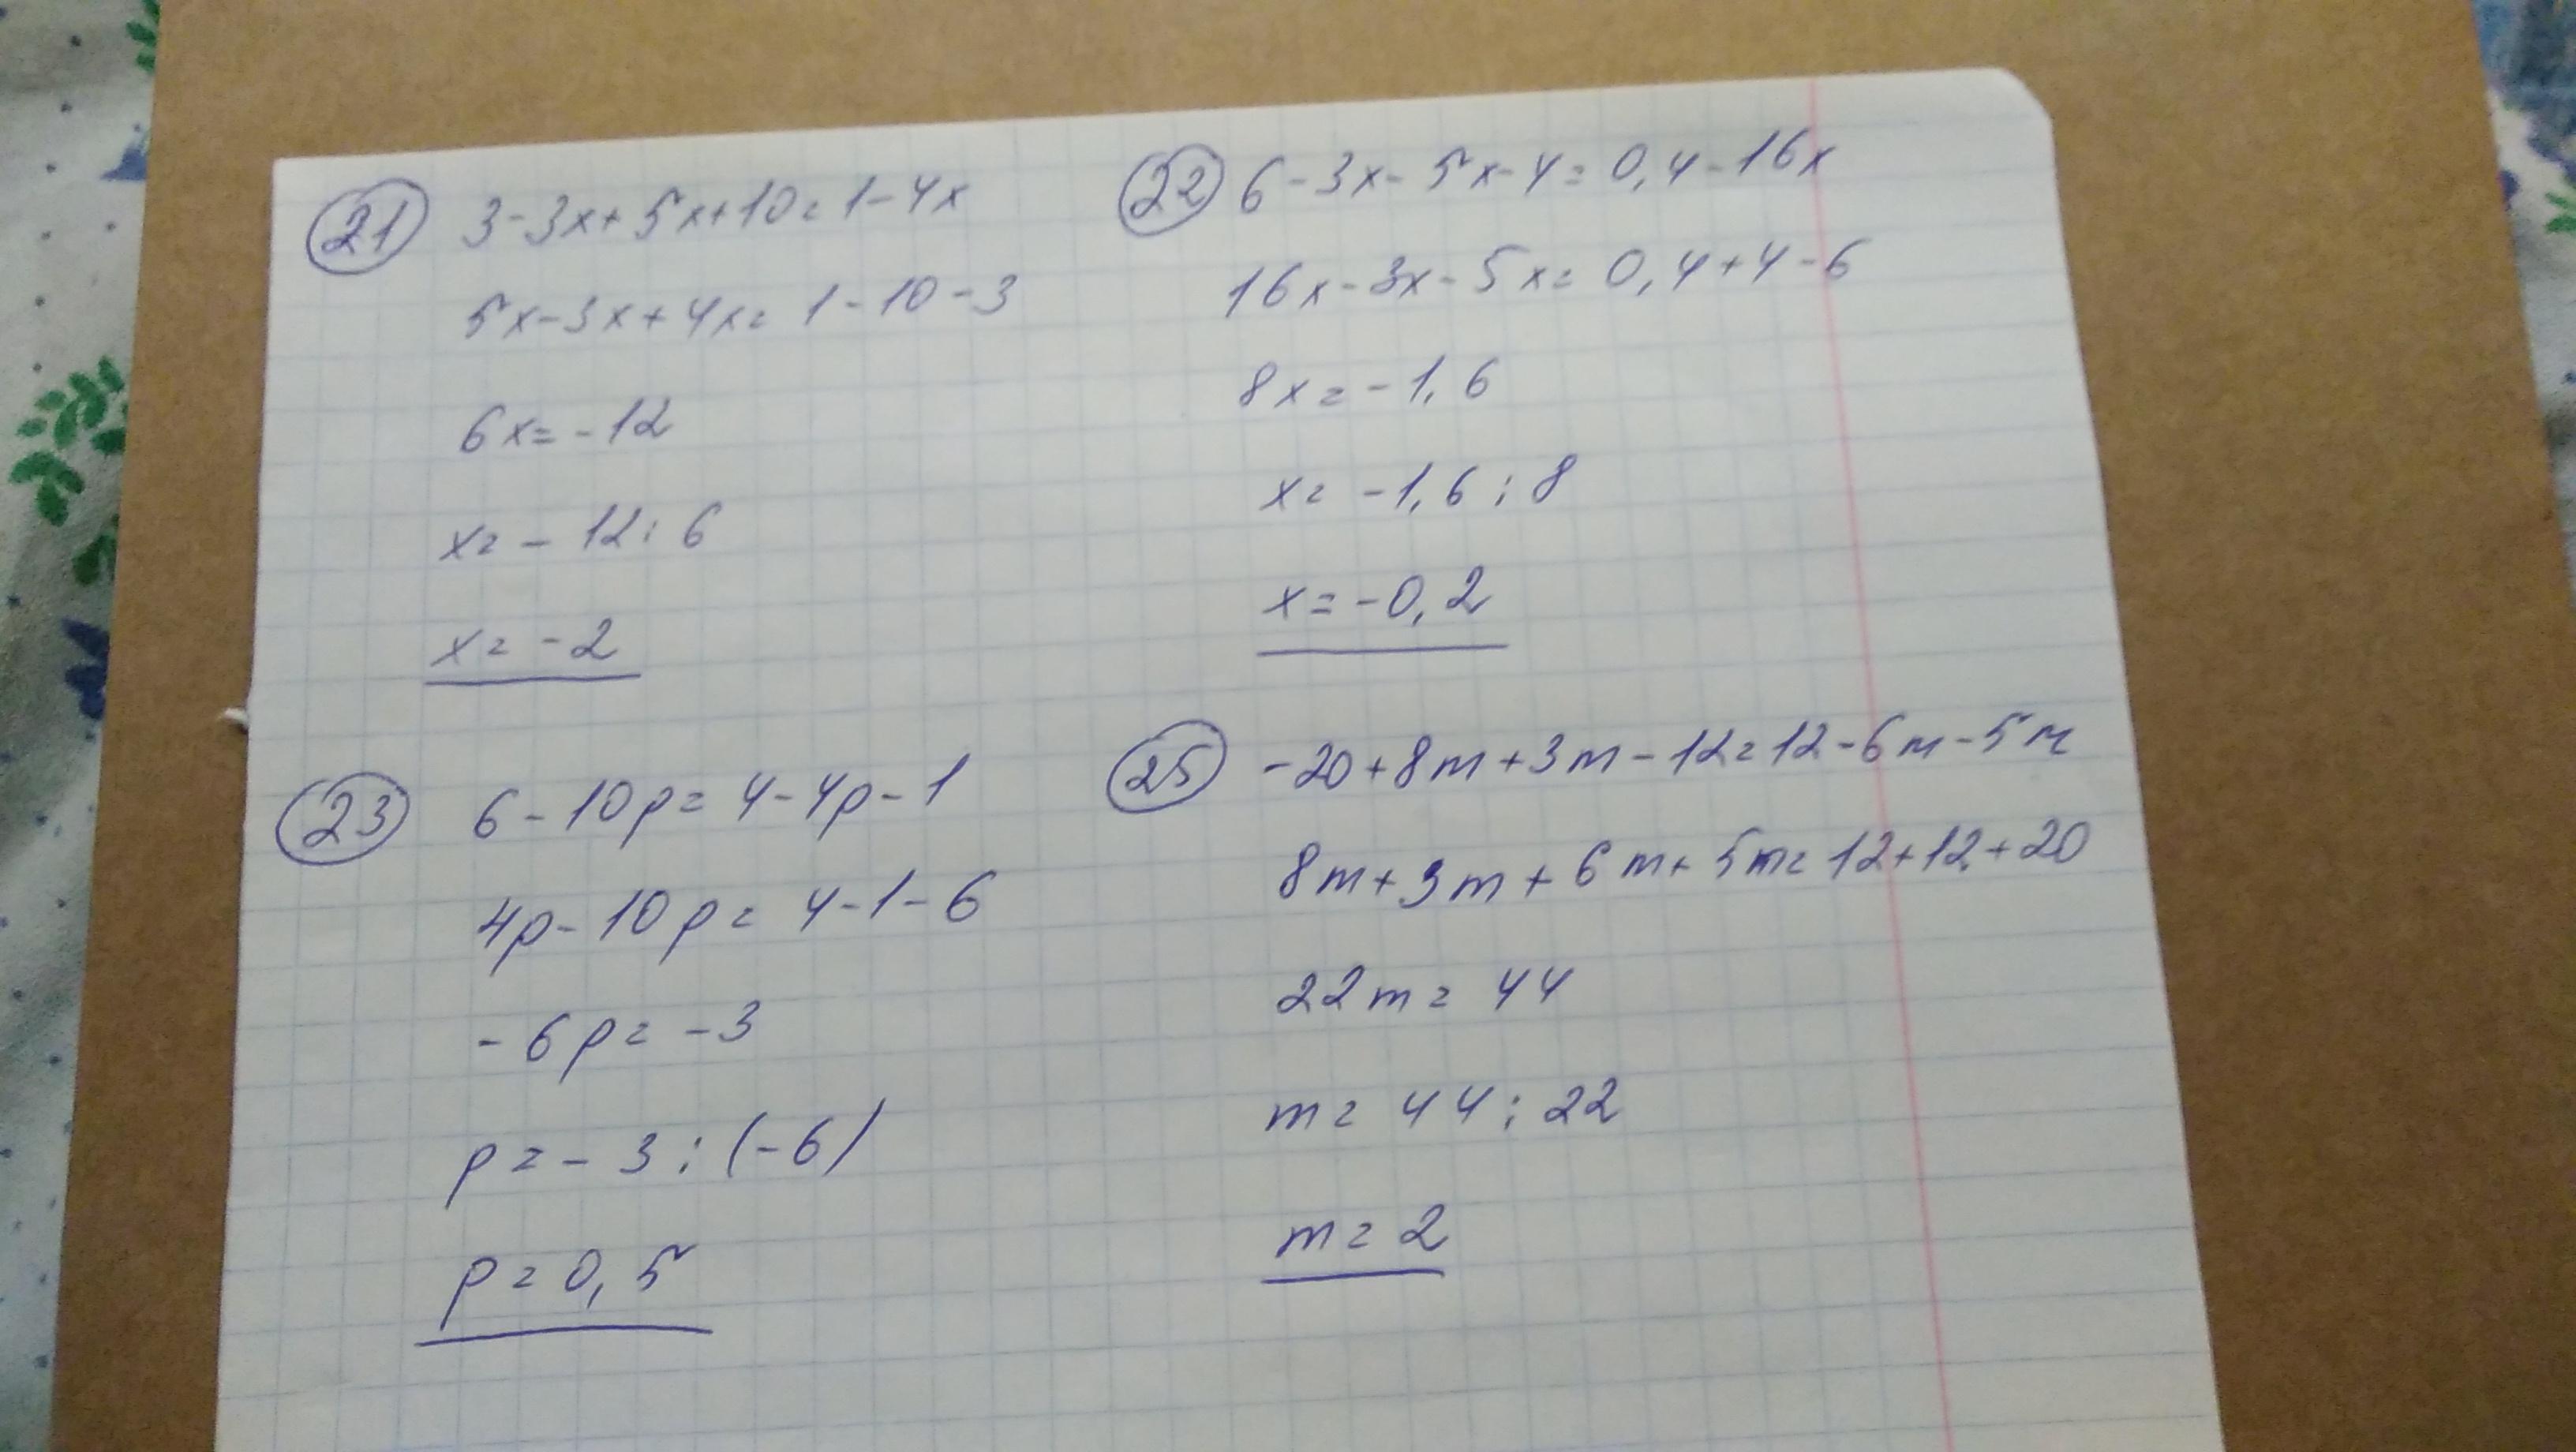 21 3-3x+5x+10=1-4x
5x-3x+4x=1-10-3
6x=-12
x=-12:6
x=-2
22 6-3x-5x-4=0,4-16x
16x-3x-5x=0,4+4-6
8x=-1,6
x=-1,6:8
x=-0,2
23 6-10p=4-4p-1
4p-10p=4-1-6
-6p=-3
p=-3:(-6)
p=0,5
25 -20+8m+3m-12=12-6m-5m
8m+3m+6m+5m=12+12+20
22m=44
m=44:22
m=2